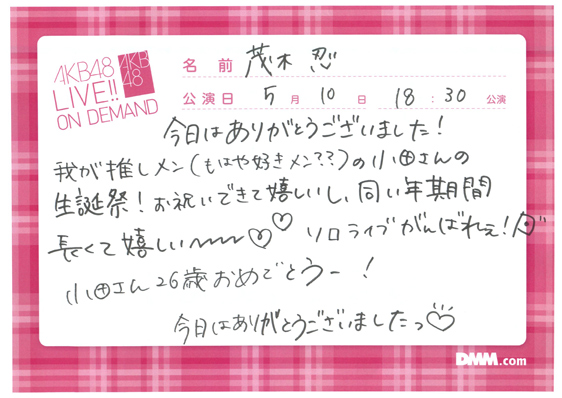 AKB48
LIVE!!
ON DEMAND
AKB
48
名前 茂木 忍
公演日 5月10日 18:30公演
今日はありがとうございました!
我が推しメン(もはや好きメン??)の小田さんの
生誕祭!お祝いできて嬉しいし、同い年期間
長くて嬉しい〜〜♡♡ ソロライブがんばれぇ!
小田さん26歳おめでとうー!
今日はありがとうございましたっ♡
DMM.com